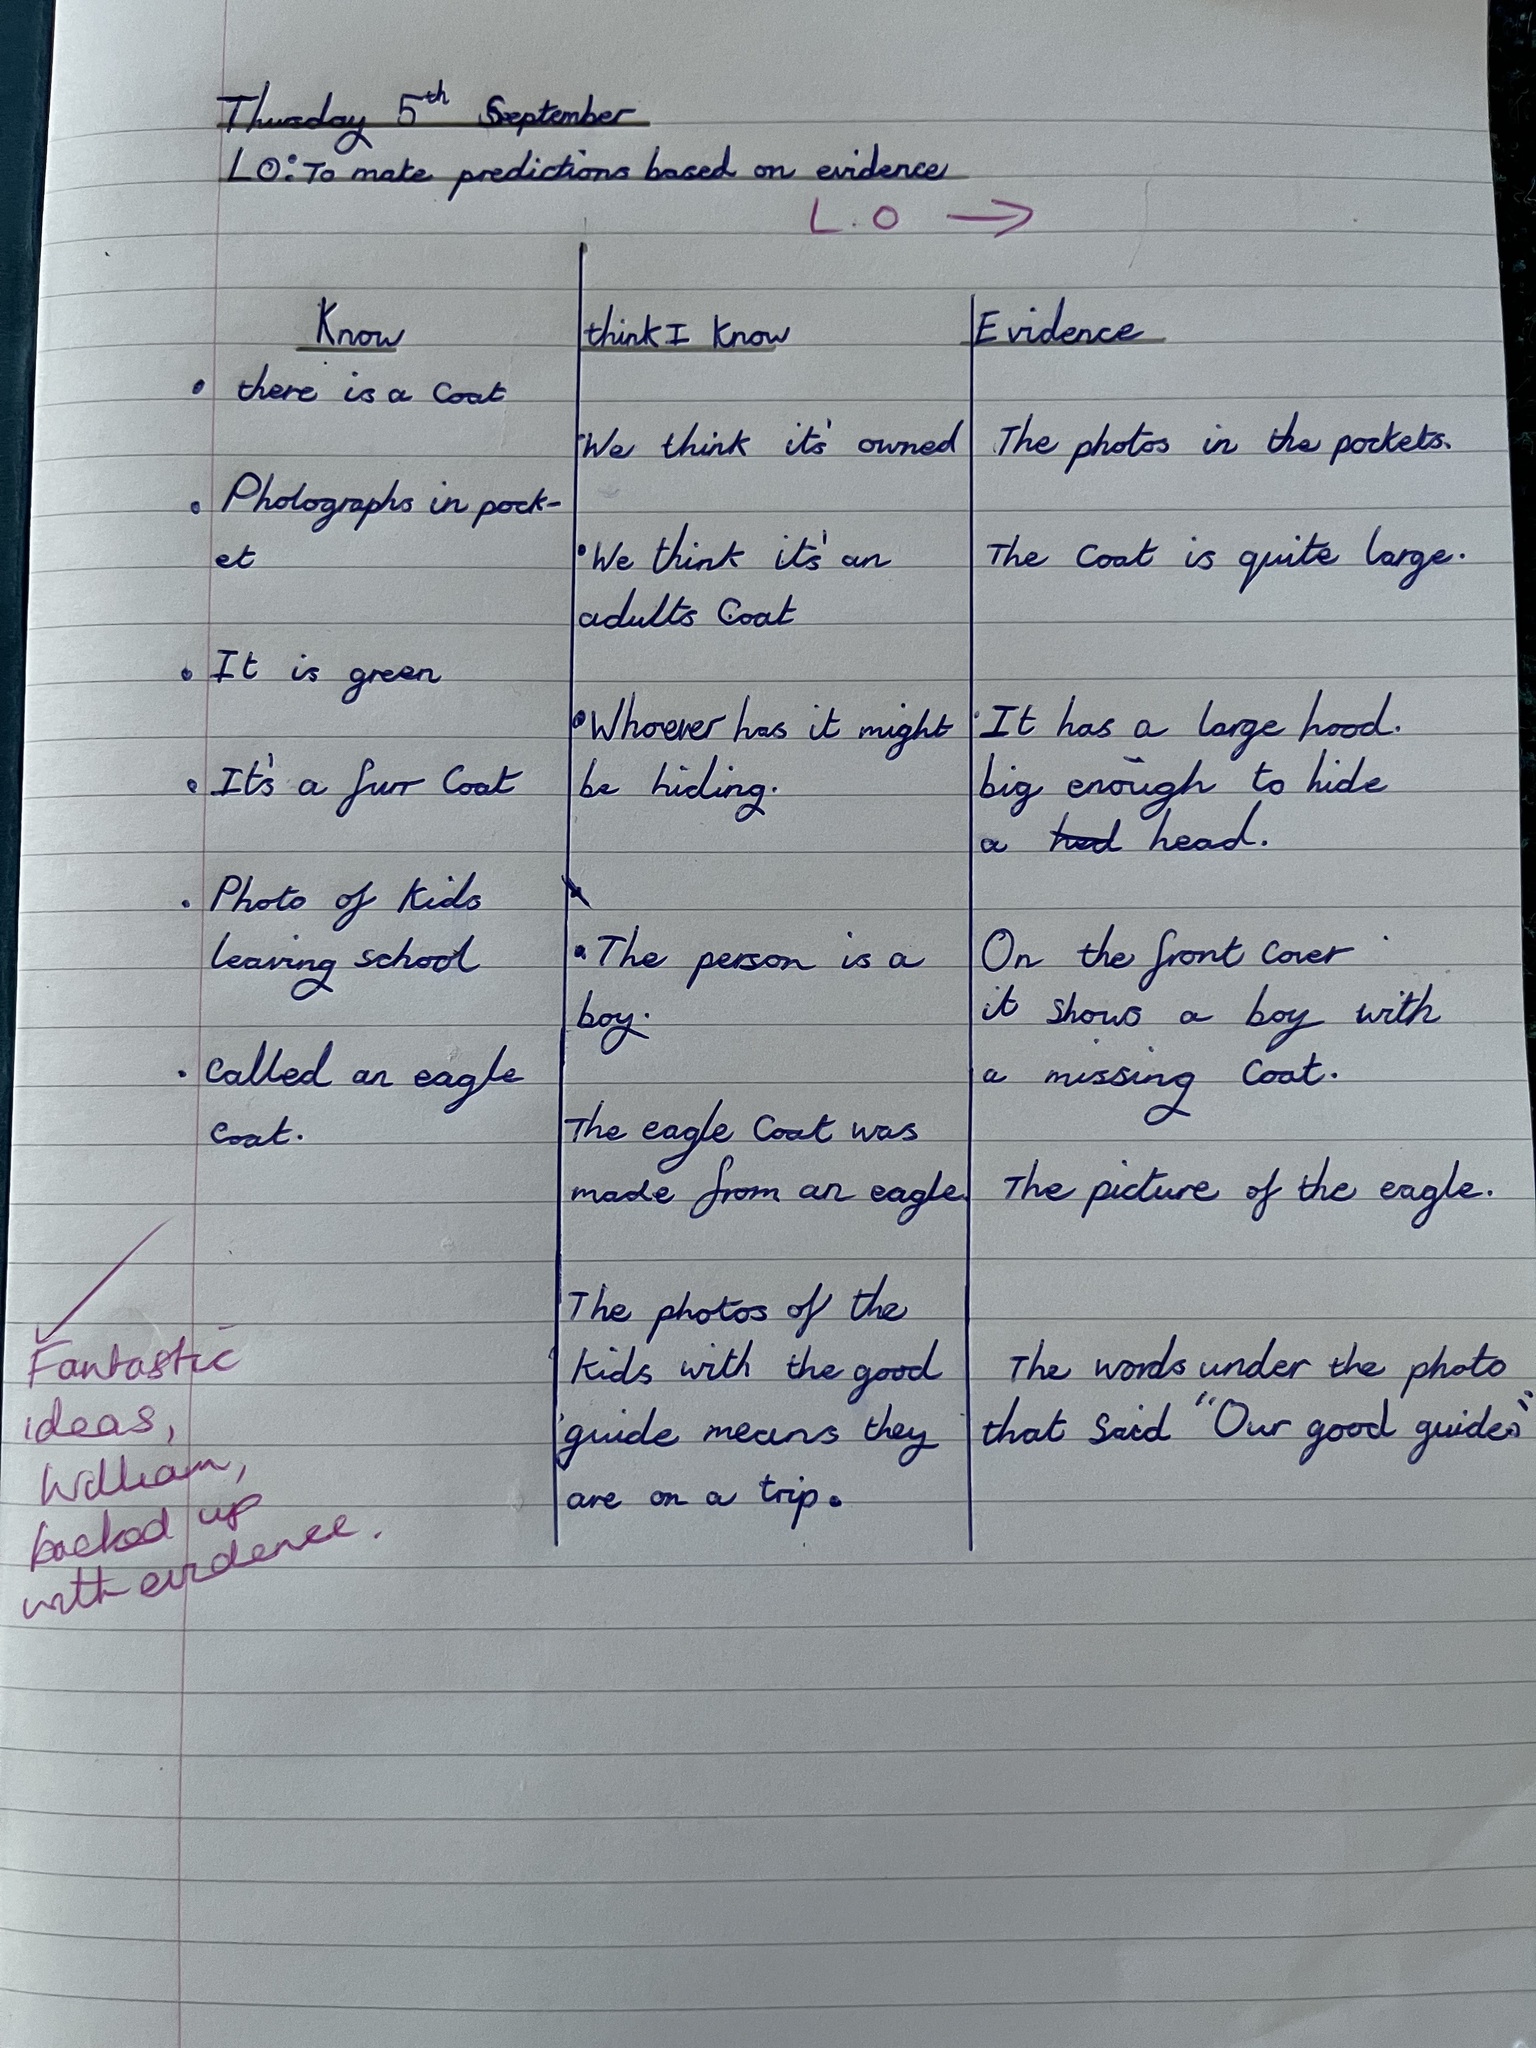 Thursday 5th September
LO: To make predictions based on evidence
L.O →
Know
there is a Coat
• Photographs in pock-
et
• It is green
• It's a furr Coat
• Photo of Kids
leaving school
• Called an eagle
Coat.
think I Know
We think it's owned
• We think it's an
adults Coat
• Whoever has it might
be hiding.
• The person is a
boy.
The eagle Coat was
made from an eagle.
The photos of the
Kids with the good
guide means they
are on a trip.
Evidence
The photos in the pockets.
The Coat is quite large.
It has a large hood.
big enough to hide
a head.
On the front Cover
it shows a boy with
a missing Coat.
The picture of the eagle.
The words under the photo
that Said "Our good guides"
Fantastic
ideas,
William,
backed up
with evidence.